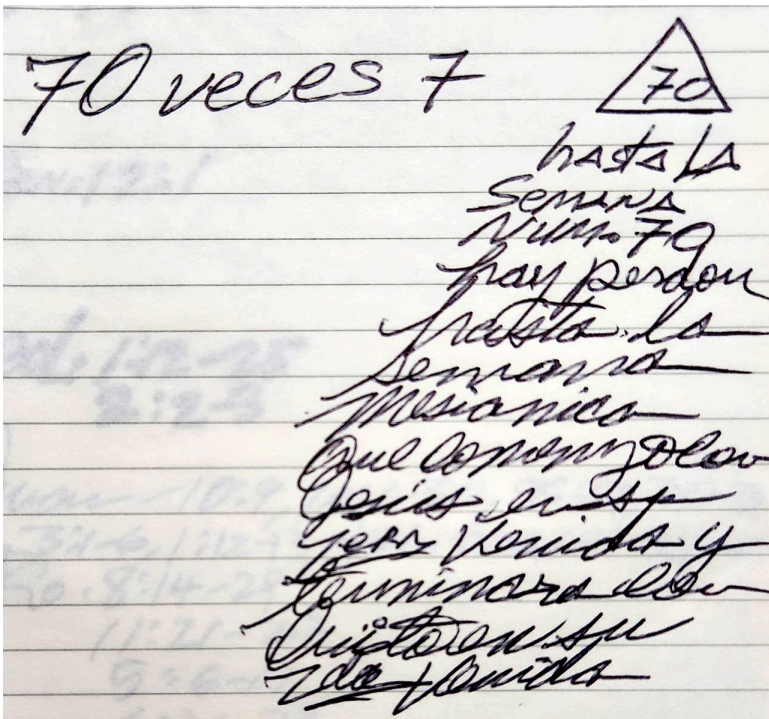 70 veces 7
70
hasta la
Semana
Num. 70
hay perdon
hasta la
semana
Mesianica
Que comenzo con
Jesus en su
Venida y
terminara con
Cristo en su
2da Venida